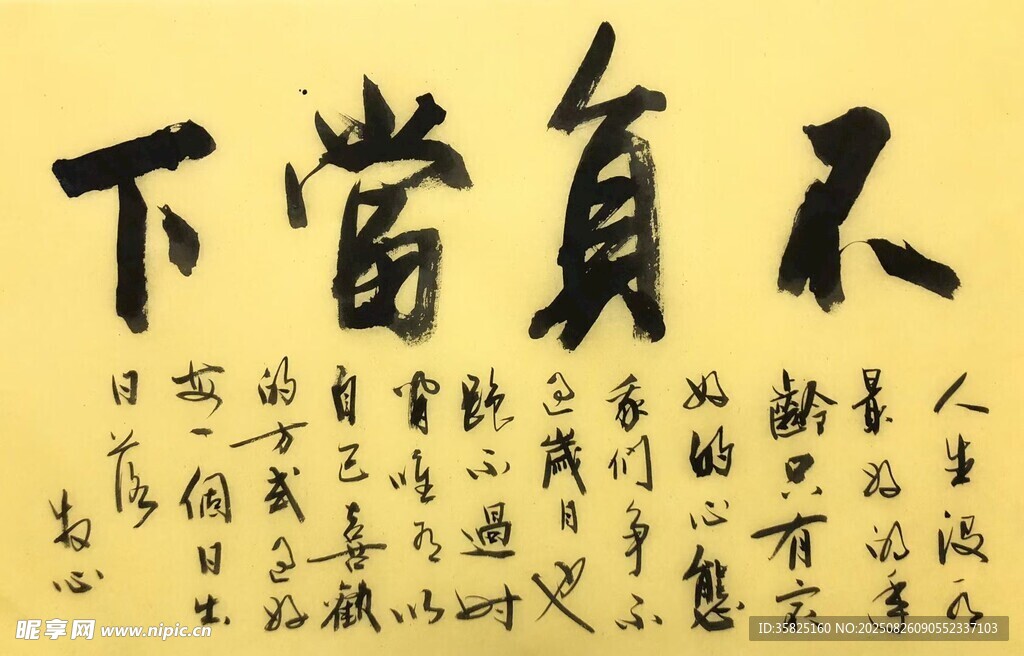 不負當下
人生没有
最好的年
齡只有最
好的心態
我們争不
過歲月也
跑不過时
間唯有以
自己喜歡
的方式過好
每一個日出
日落
牧心
昵享网 www.nipic.cn
ID:35825160 NO:20250826090552337103